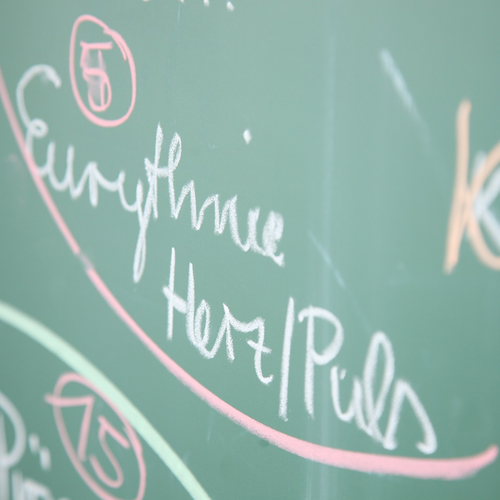 5
Eurythmie
Herz/Puls
K
15